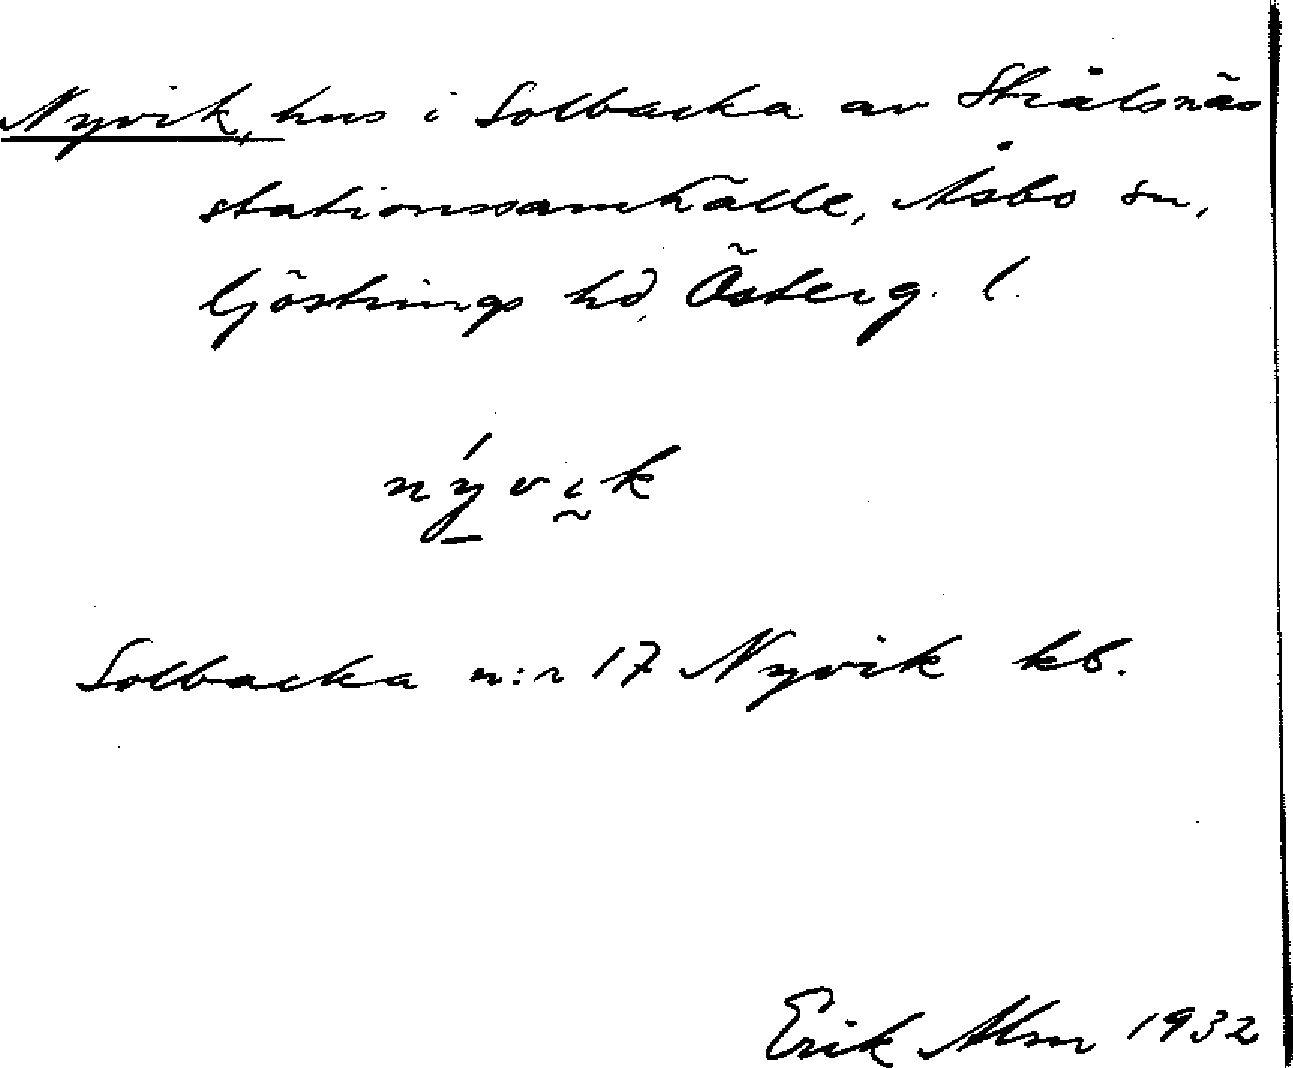 Nyvik, hus i Solbacka av Strålsnäs
stationssamhälle, Åsbo sn,
Göstrings hd, Österg. l.
nývik
Solbacka n:r 17 Nyvik kb.
Erik Alm 1932